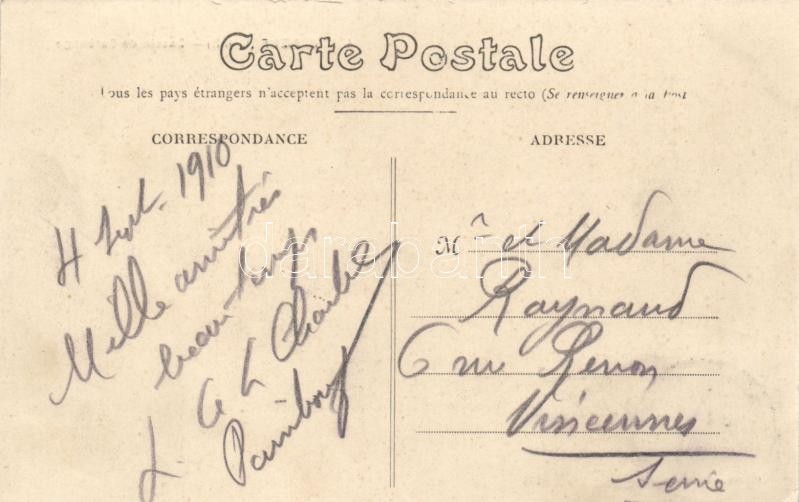 Carte Postale
Tous les pays étrangers n'acceptent pas la correspondance au recto (Se renseigner à la Post
CORRESPONDANCE
4 Sept. 1910
Mille amitiés
beau temps
ADRESSE
Mr et Madame
Raynaud
6 rue Renon
Vincennes
Seine
darabanth